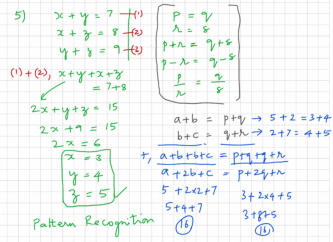 5)
x + y = 7 → (1)
x + z = 8 → (2)
y + z = 9 → (3)
(1) + (2), x+y+x+z = 7+8
2x + y + z = 15
2x + 9 = 15
2x = 6
x = 3
y = 4
z = 5
Pattern Recognition
p = q
r = s
p+r = q+s
p-r = q-s
p/r = q/s
a+b = p+q → 5+2 = 3+4
b+c = q+r → 2+7 = 4+5
+, a+b+b+c = p+q+q+r
a+2b+c = p+2q+r
5+2×2+7 3+2×4+5
5+4+7 3+8+5
16 16